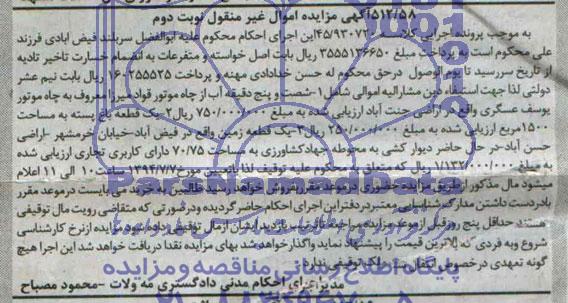 ۵۱۲/۵۸آگهی مزایده اموال غیر منقول نوبت دوم
به موجب پرونده اجرایی کلاسه ۴۵/۹۳۰۷۲۰این اجرای احکام محکوم علیه ابوالفضل سربلند فیض ابادی فرزند
علی محکوم است به پرداخت مبلغ ۳۵۵۵۱۳۶۶۵۰ ریال بابت اصل خواسته و متفرعات به انضمام خسارت تاخیر تادیه
از تاریخ سررسید تا یوم الوصول درحق محکوم له حسن خدادادی مهنه و پرداخت ۱۶۰۲۵۵۵۲۵ ریال بابت نیم عشر
دولتی لذا جهت استیفاء دین مشارالیه اموالی شامل ۱-شصت و پنج دقیقه آب از چاه موتور قوام میرزا معروف به چاه موتور
یوسف عسگری واقع در اراضی جنت آباد ارزیابی شده به مبلغ ۷۵۰/۰۰۰/۰۰۰ ریال۲-یک قطعه باغ پسته به مساحت
۱۵۰۰مربع ارزیابی شده به مبلغ ۲۵۰/۰۰۰/۰۰۰ ریال۳-یک قطعه زمین واقع در فیض آباد-خیابان خرمشهر -اراضی
حسن آباد-در حال حاضر دیوار کشی به محوطه جهادکشاورزی به مساحت ۷۰/۷۵ دارای کاربری تجاری ارزیابی شده
به مبلغ ۱/۱۳۲/۰۰۰/۰۰۰ ریال که متعلق به محکوم علیه توقیف لذا باتعیین مورخ۱۳۹۴/۷/۲۰ ساعت۱۰ الی ۱۱ اعلام
میشود مال مذکور ازطریق مزایده حضوری درموعد مقرربفروش خواهد رسید طالبین به خرید می بایست درموعد مقرر
بادردست داشتن مدارک شناسایی معتبر دردفتر این اجرای احکام حاضر گردیده ودرصورتی که متقاضی رویت مال توقیفی
هستند حداقل پنج روز قبل از موعد مزایده مراجعه تا ترتیب بازدید ایشان ازمال توقیفی داده شود مزایده ازنرخ کارشناسی
شروع وبه فردی که بالاترین قیمت را پیشنهاد نماید واگذار خواهد شد بهای مزایده نقدا دریافت خواهد شد این اجرا هیچ
گونه تعهدی درخصوص انتقال سند ملک توقیفی ندارد.
پایگاه اطلاع رسانی مناقصه و مزایده
مدیر اجرای احکام مدنی دادگستری مه ولات -محمود مصباح